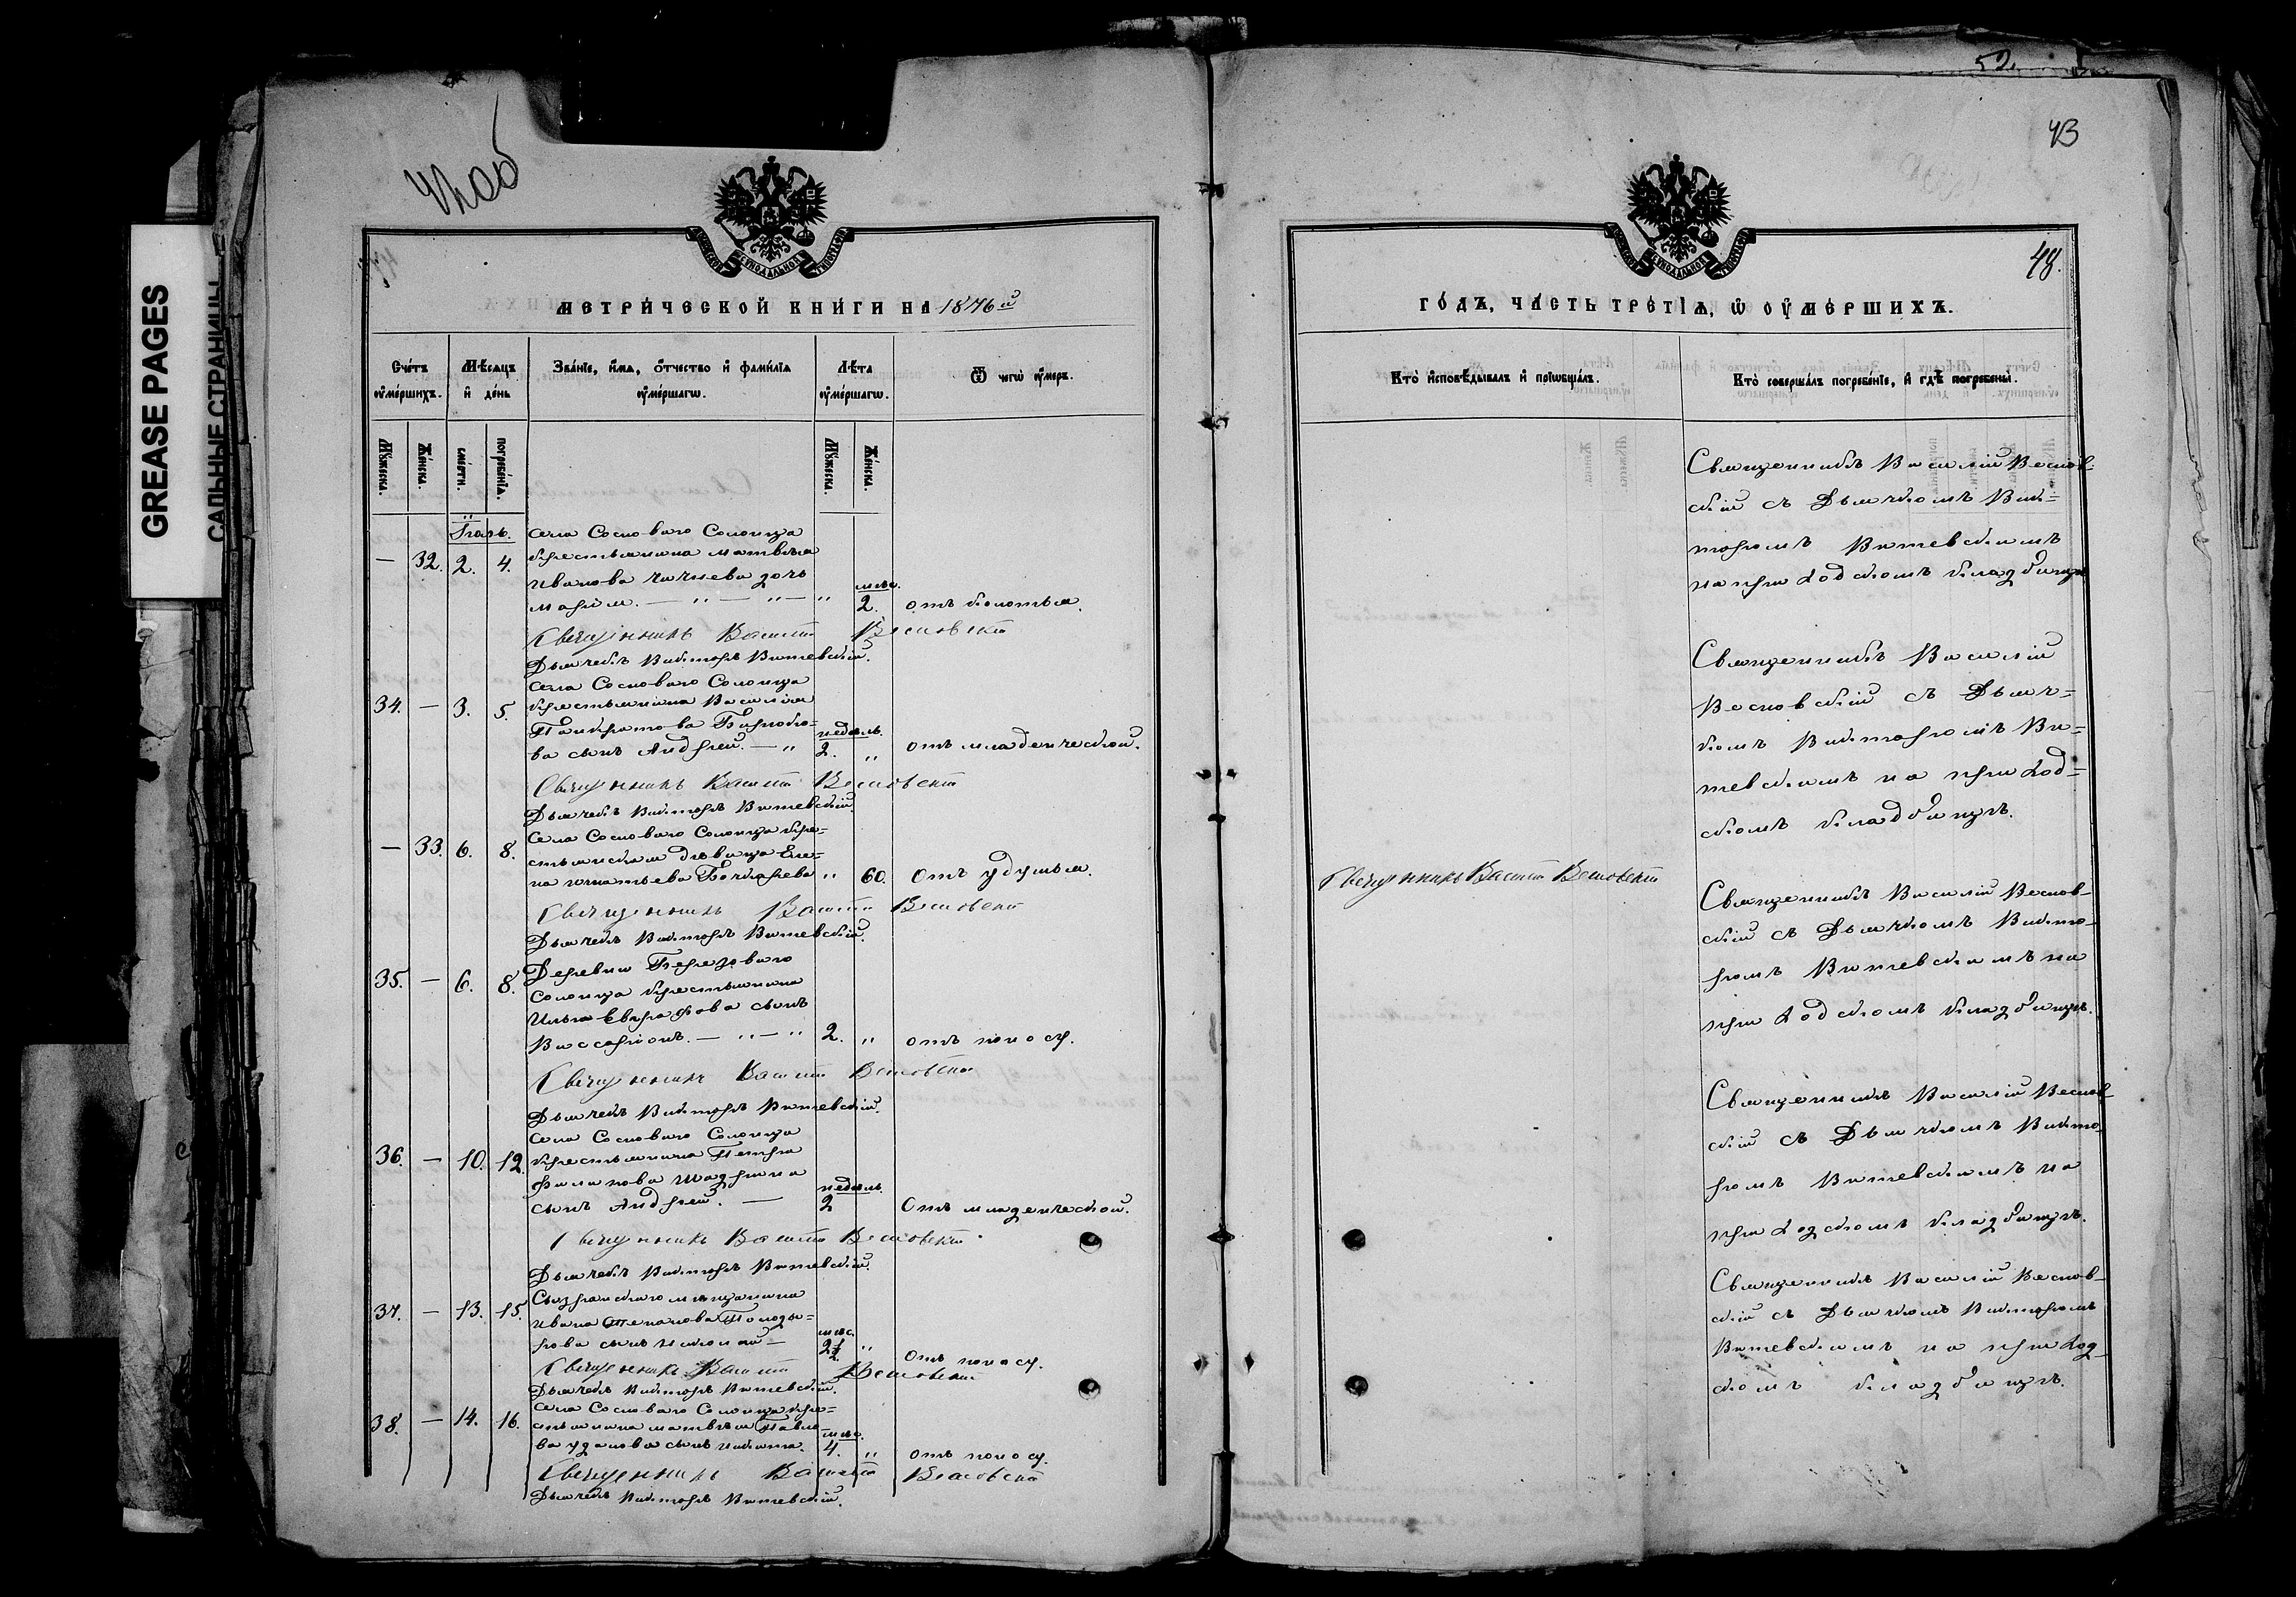 GREASE PAGES
САЛЬНЫЕ СТРАНИЦЫ
42об
МЕТРИЧЕСКОЙ КНИГИ НА 1876й
Счетъ умершихъ.
Мѣсяцъ и день
Званіе, имя, отчество и фамилія умершагѡ.
Лѣта умершагѡ.
Ѿ чегѡ умеръ.
Мужеска.
Женска.
смерти.
погребенія.
Мужеска.
Женска.
Іюль.
села Сосноваго Солонца
— 32. 2. 4. крестьянина Матвѣя
Иванова дочь мѣс.
Марія. — " — " — " 2. отъ колотья.
Священникъ Василій Весновскій
Дьячекъ Викторъ Витевскій.
села Сосноваго Солонца
34. — 3. 5. крестьянина Василія
Панкратова
ва сынъ Андрей. — " недѣль. 2. " отъ младенческой.
Священникъ Василій Весновскій
Дьячекъ Викторъ Витевскій.
Села Сосноваго Солонца кре=
— 33. 6. 8. стьянская дѣвица Еле=
на Игнатьева " 60. Отъ удушья.
Священникъ Василій Весновскій
Дьячекъ Викторъ Витевскій.
35. — 6. 8. Деревни Березоваго
Солонца крестьянина
Ильи Евграфова сынъ
Виссаріонъ. — " — " 2. " отъ поносу.
Священникъ Василій Весновскій
Дьячекъ Викторъ Витевскій.
села Сосноваго Солонца
36. — 10. 12. крестьянина Петра
Филипова Шадрина недѣль.
сынъ Андрей. — 2 Отъ младенческой.
Священникъ Василій Весновскій.
Дьячекъ Викторъ Витевскій.
Сызранскаго мѣщанина
37. — 13. 15. Ивана Степанова
рова сынъ Николай — мѣс. 2½ " Отъ поносу.
Священникъ Василій Весновскій
Дьячекъ Викторъ Витевскій.
села Сосноваго Солонца кре=
38. — 14. 16. стьянина Матвѣя Павло=
ва Уданова сынъ Никита. мѣс. 4. " отъ поносу.
Священникъ Василій Весновскій
Дьячекъ Викторъ Витевскій.
52.
43
48.
ГОДЪ, ЧАСТЬ ТРЕТІЯ, Ѡ УМЕРШИХЪ.
Кто исповѣдывалъ и пріобщалъ.
Кто совершалъ погребеніе, и гдѣ погребены.
Священникъ Василій Веснов-
скій съ Дьячкомъ Вик=
торомъ Витевскимъ
на приходскомъ кладбищѣ
Священникъ Василій
Весновскій съ Дьяч=
комъ Викторомъ Ви=
тевскимъ на приход=
скомъ кладбищѣ.
Священникъ Василій Весновскій
Священникъ Василій Веснов-
скій съ Дьячкомъ Викто-
ромъ Витевскимъ на
приходскомъ кладбищѣ.
Священникъ Василій Веснов-
скій съ Дьячкомъ Викто-
ромъ Витевскимъ на
приходскомъ кладбищѣ.
Священникъ Василій Веснов-
скій съ Дьячкомъ Викторомъ
Витевскимъ на приход-
скомъ кладбищѣ.